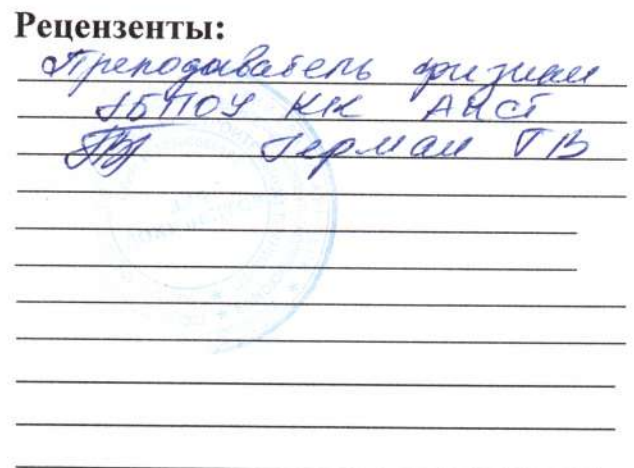 Рецензенты:
Преподаватель физики
ГБПОУ КК АИСТ
Герман ГВ